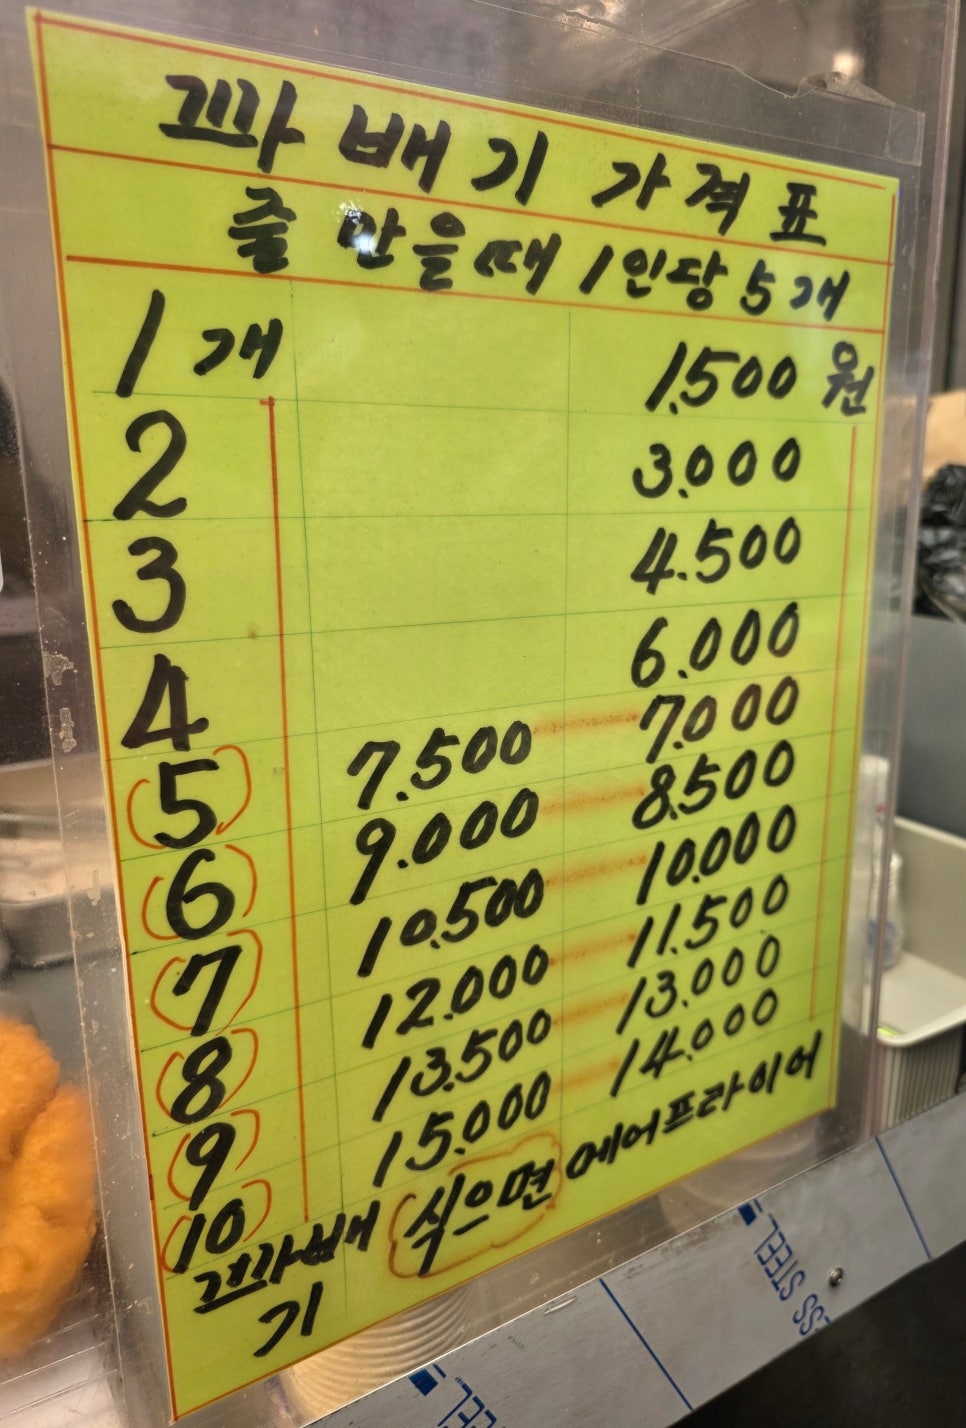 꽈배기 가격표
줄 안을때 1인당 5개
1개 1.500원
2 3.000
3 4.500
4 6.000
5 7.500 7.000
6 9.000 8.500
7 10.500 10.000
8 12.000 11.500
9 13.500 13.000
10 15.000 14.000
꽈배기 식으면 에어프라이어
STEEL
SS STEEL